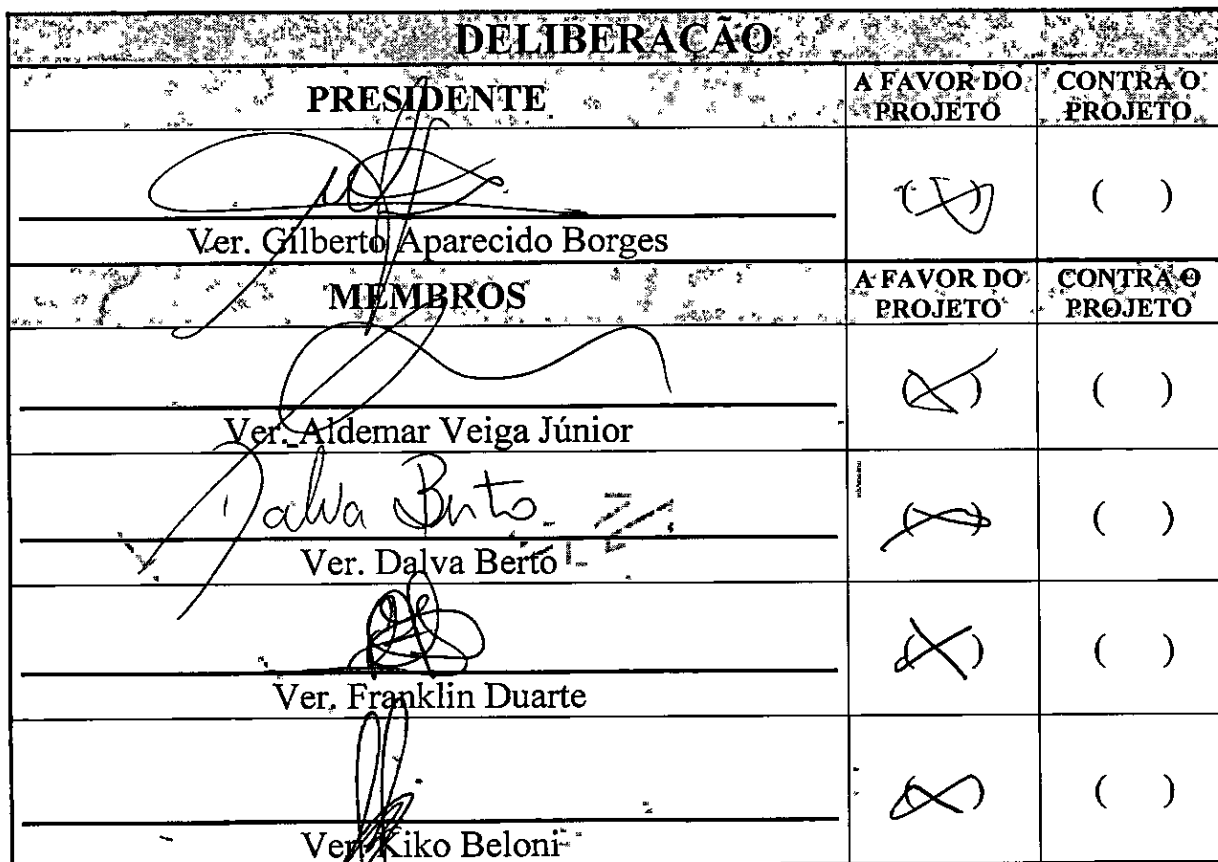 DELIBERAÇÃO
PRESIDENTE A FAVOR DO PROJETO CONTRA O PROJETO
( ) ( )
Ver. Gilberto Aparecido Borges
MEMBROS A FAVOR DO PROJETO CONTRA O PROJETO
(X) ( )
Ver. Aldemar Veiga Júnior
Dalva Berto (X) ( )
Ver. Dalva Berto
(X) ( )
Ver. Franklin Duarte
(X) ( )
Ver. Kiko Beloni